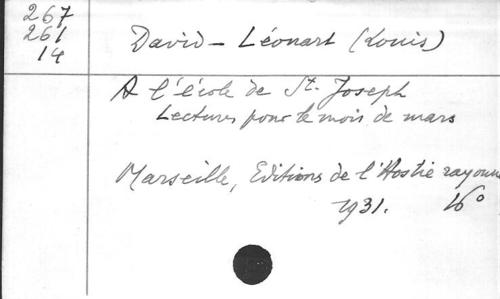 267
261
14
David - Léonart (Louis)
A l'école de St. Joseph
Lectures pour le mois de mars
Marseille, Editions de l'Hostie rayonn
1931. 16°